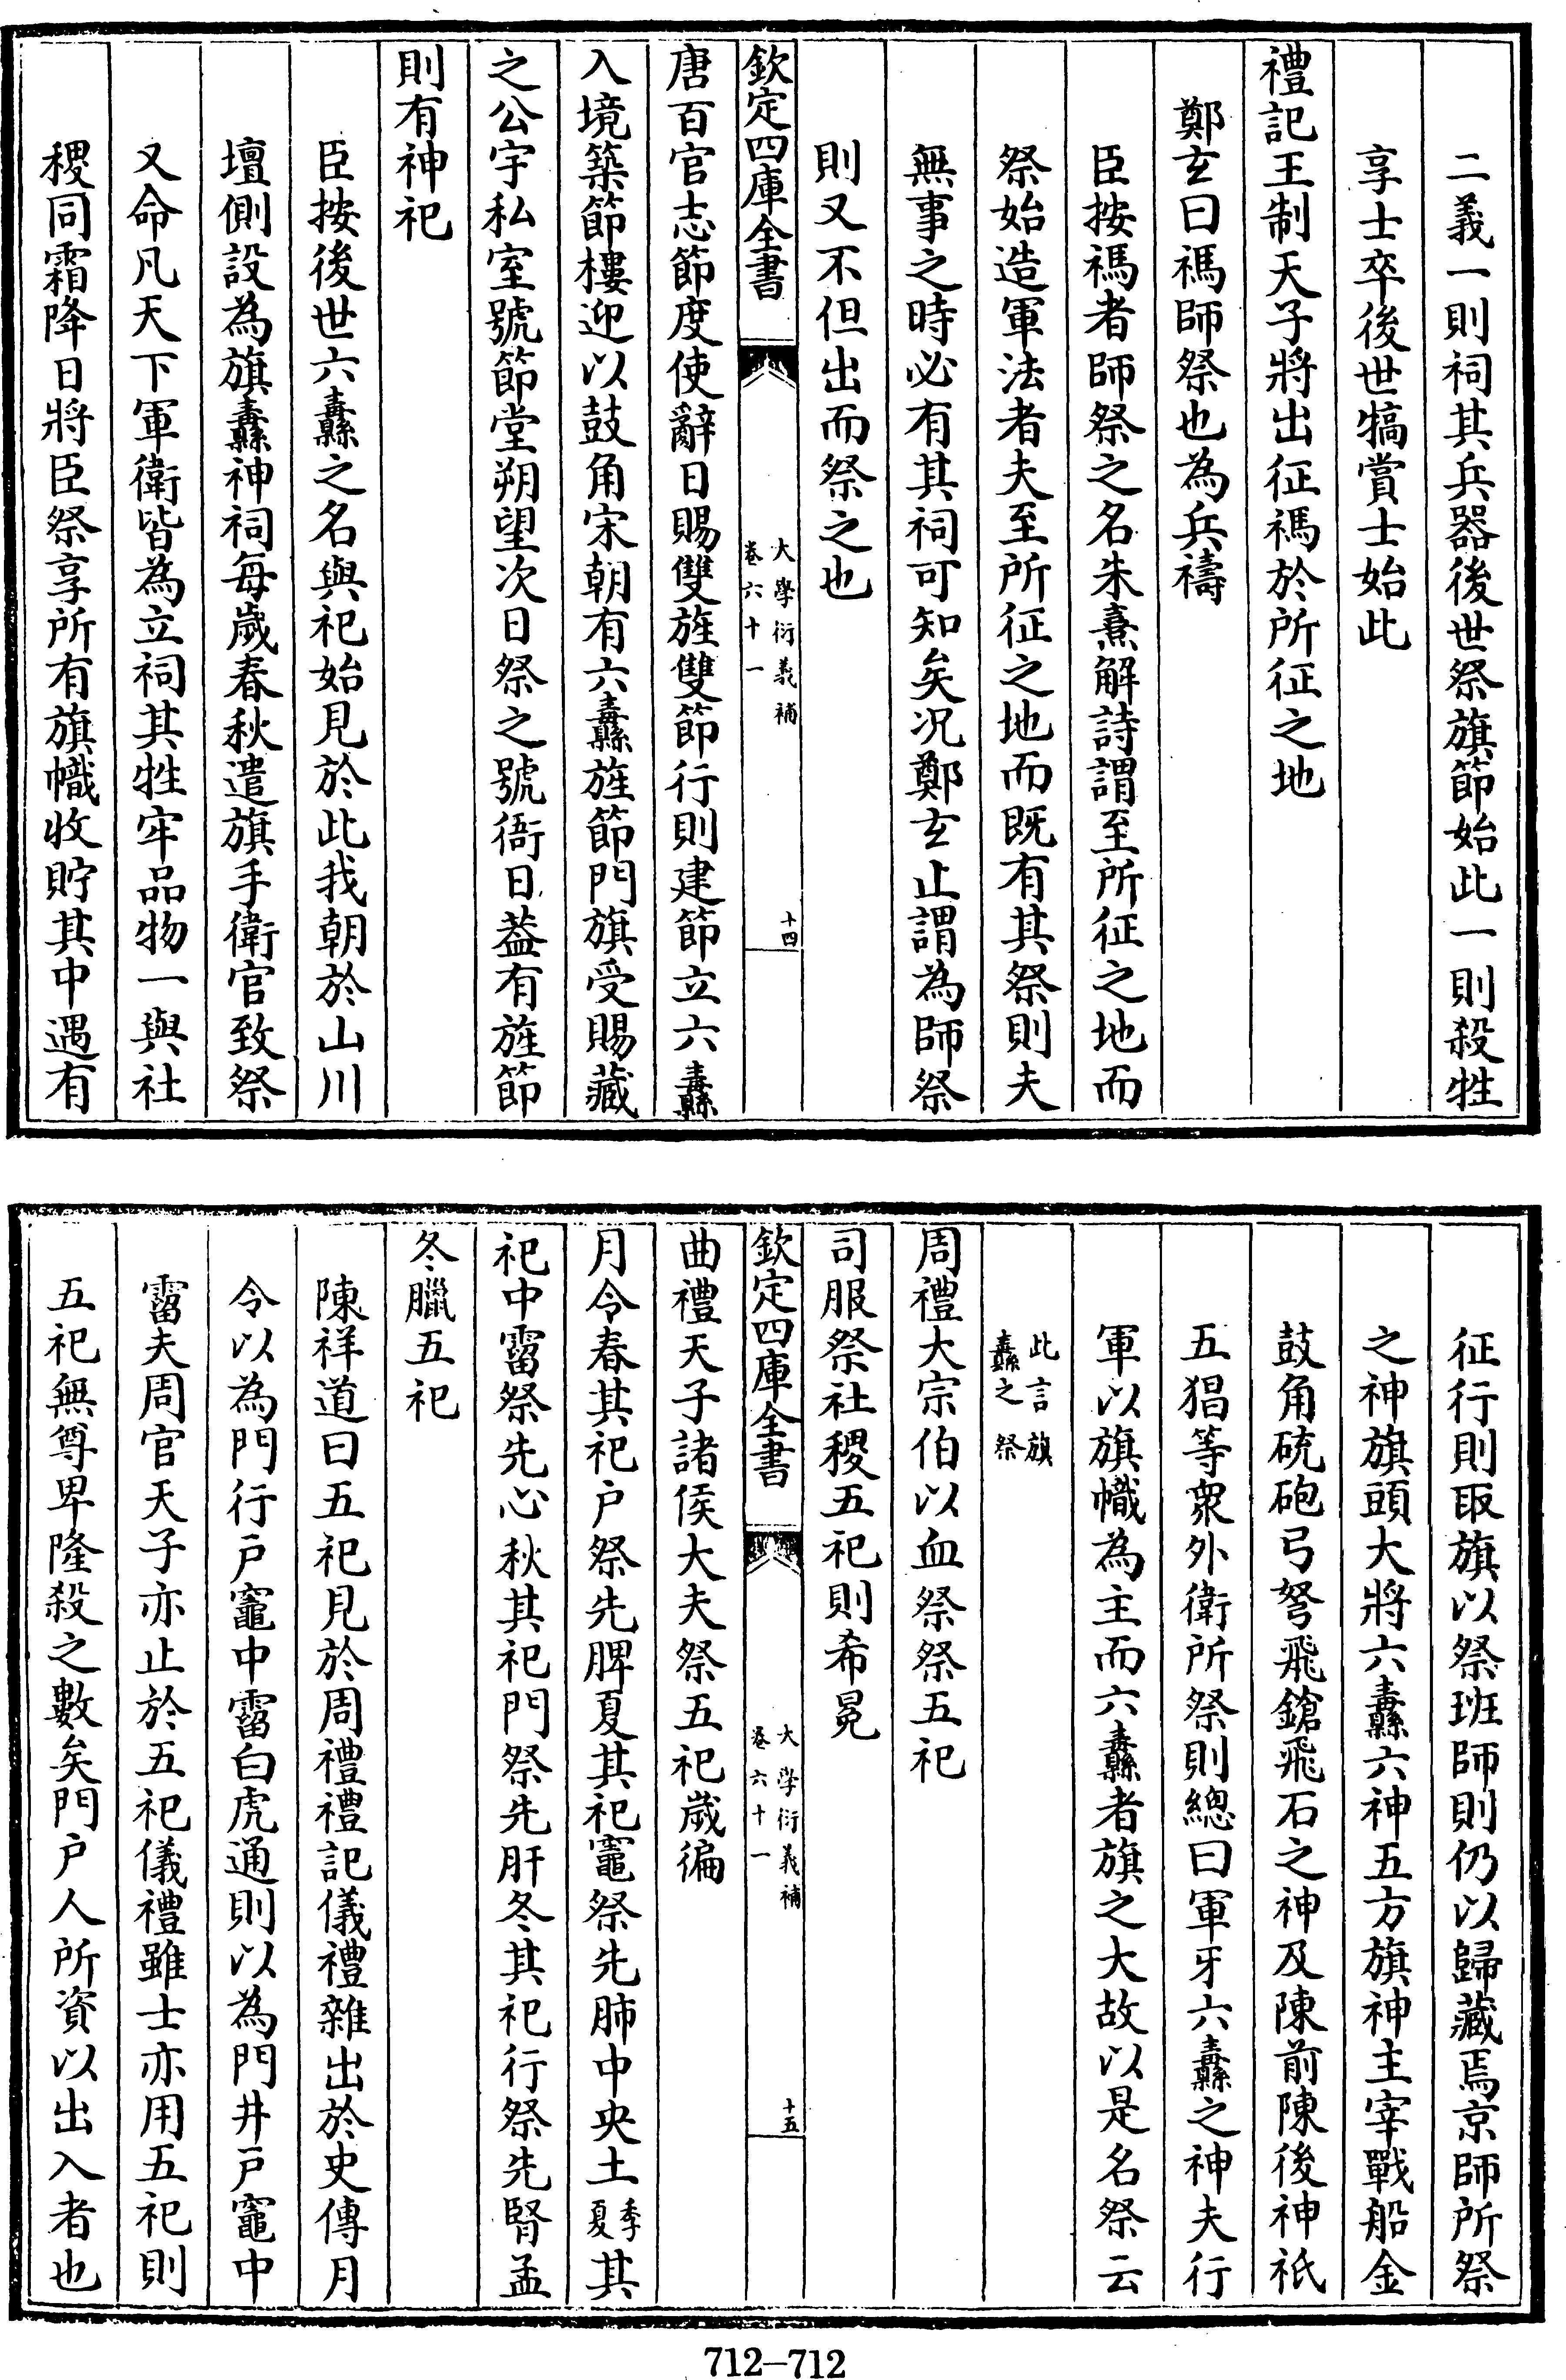 二義一則祠其兵器後世祭旗節始此一則殺牲
享士卒後世犒賞士始此
禮記王制天子將出征禡於所征之地
鄭玄曰禡師祭也為兵禱
臣按禡者師祭之名朱熹解詩謂至所征之地而
祭始造軍法者夫至所征之地而既有其祭則夫
無事之時必有其祠可知矣况鄭玄止謂為師祭
則又不但出而祭之也
欽定四庫全書
大學衍義補
卷六十一
十四
唐百官志節度使辭日賜雙旌雙節行則建節立六纛
入境築節樓迎以鼓角宋朝有六纛旌節門旗受賜藏
之公宇私室號節堂朔望次日祭之號衙日葢有旌節
則有神祀
臣按後世六纛之名與祀始見於此我朝於山川
壇側設為旗纛神祠每歲春秋遣旗手衛官致祭
又命凡天下軍衛皆為立祠其牲牢品物一與社
稷同霜降日將臣祭享所有旗幟收貯其中遇有
征行則取旗以祭班師則仍以歸藏焉京師所祭
之神旗頭大將六纛六神五方旗神主宰戰船金
鼓角硫砲弓弩飛鎗飛石之神及陳前陳後神祇
五猖等衆外衛所祭則總曰軍牙六纛之神夫行
軍以旗幟為主而六纛者旗之大故以是名祭云
此言旗
纛之祭
周禮大宗伯以血祭祭五祀
司服祭社稷五祀則希冕
欽定四庫全書
大學衍義補
卷六十一
十五
曲禮天子諸侯大夫祭五祀歲徧
月令春其祀户祭先脾夏其祀竈祭先肺中央土季夏其
祀中霤祭先心秋其祀門祭先肝冬其祀行祭先腎孟
冬臘五祀
陳祥道曰五祀見於周禮禮記儀禮雜出於史傳月
令以為門行户竈中霤白虎通則以為門井户竈中
霤夫周官天子亦止於五祀儀禮雖士亦用五祀則
五祀無尊卑隆殺之數矣門户人所資以出入者也
712–712